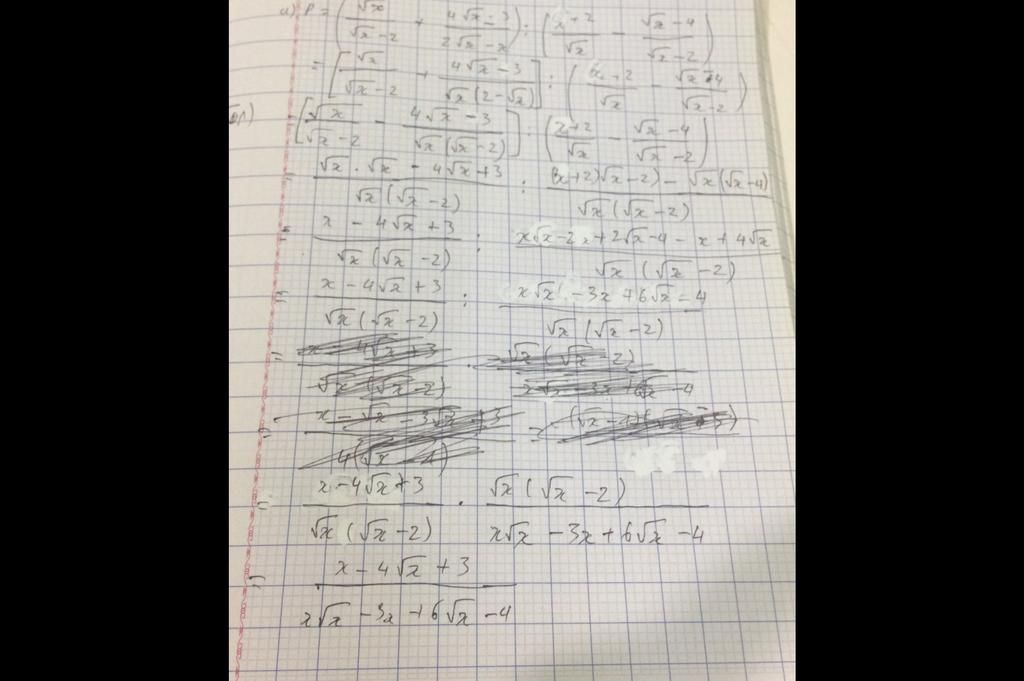 a) P = (√x/(√x-2) + (4√x-3)/(2√x-x)) : ((x+2)/√x - (√x-4)/(√x-2))
= [√x/(√x-2) + (4√x-3)/(√x(2-√x))] : ((x+2)/√x - (√x-4)/(√x-2))
= [√x/(√x-2) - (4√x-3)/(√x(√x-2))] : ((x+2)/√x - (√x-4)/(√x-2))
= (√x.√x - 4√x+3)/(√x(√x-2)) : ((x+2)(√x-2) - √x(√x-4))/(√x(√x-2))
= (x - 4√x + 3)/(√x(√x-2)) : (x√x-2x+2√x-4-x+4√x)/(√x(√x-2))
= (x - 4√x + 3)/(√x(√x-2)) : (x√x - 3x + 6√x - 4)/(√x(√x-2))
= (x-4√x+3)/(√x(√x-2)) . √x(√x-2)/(x√x - 3x + 6√x - 4)
= (x - 4√x + 3)/(x√x - 3x + 6√x - 4)